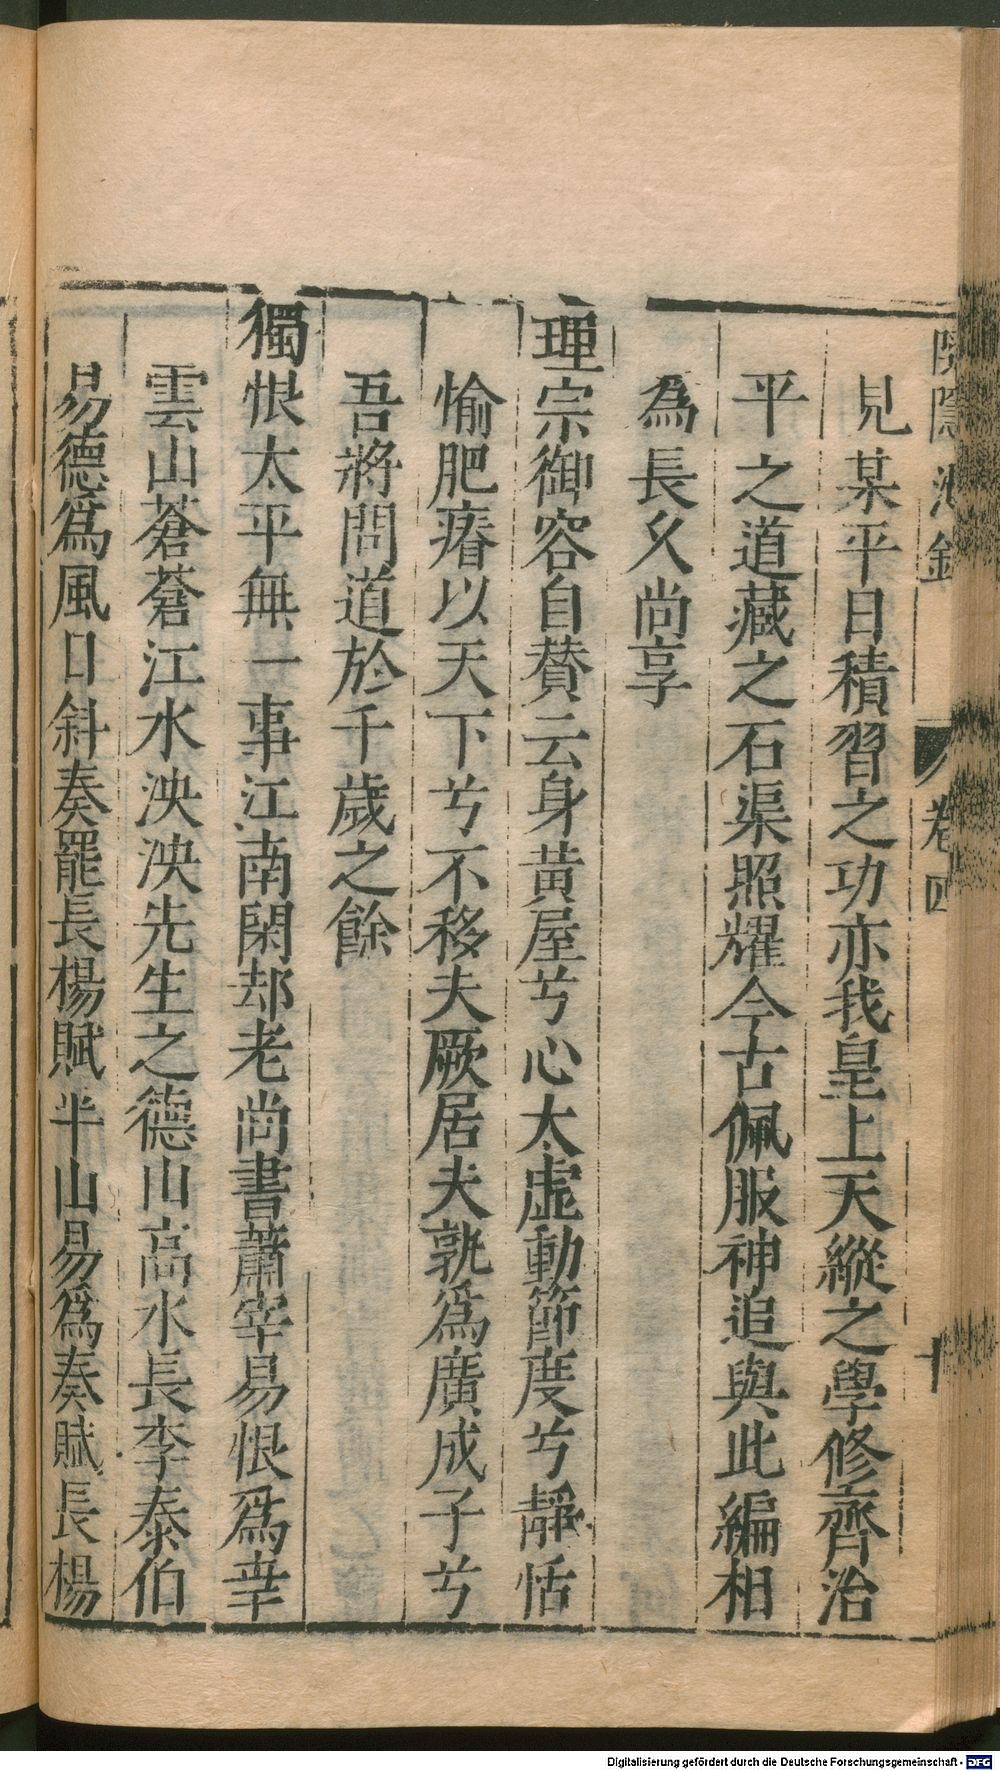 卷四
十
見某平日積習之功亦我皇上天縱之學修齊治
平之道藏之石渠照耀今古佩服神追與此編相
為長久尚享
理宗御容自賛云身黃屋兮心太虛動節度兮靜恬
愉肥瘠以天下兮不移夫厥居夫孰爲廣成子兮
吾將問道於千歲之餘
獨恨太平無一事江南閑却老尚書蕭宰易恨爲幸
雲山蒼蒼江水泱泱先生之德山高水長李泰伯
易德爲風日斜奏罷長楊賦半山易爲奏賦長楊
Digitalisierung gefördert durch die Deutsche Forschungsgemeinschaft - DFG